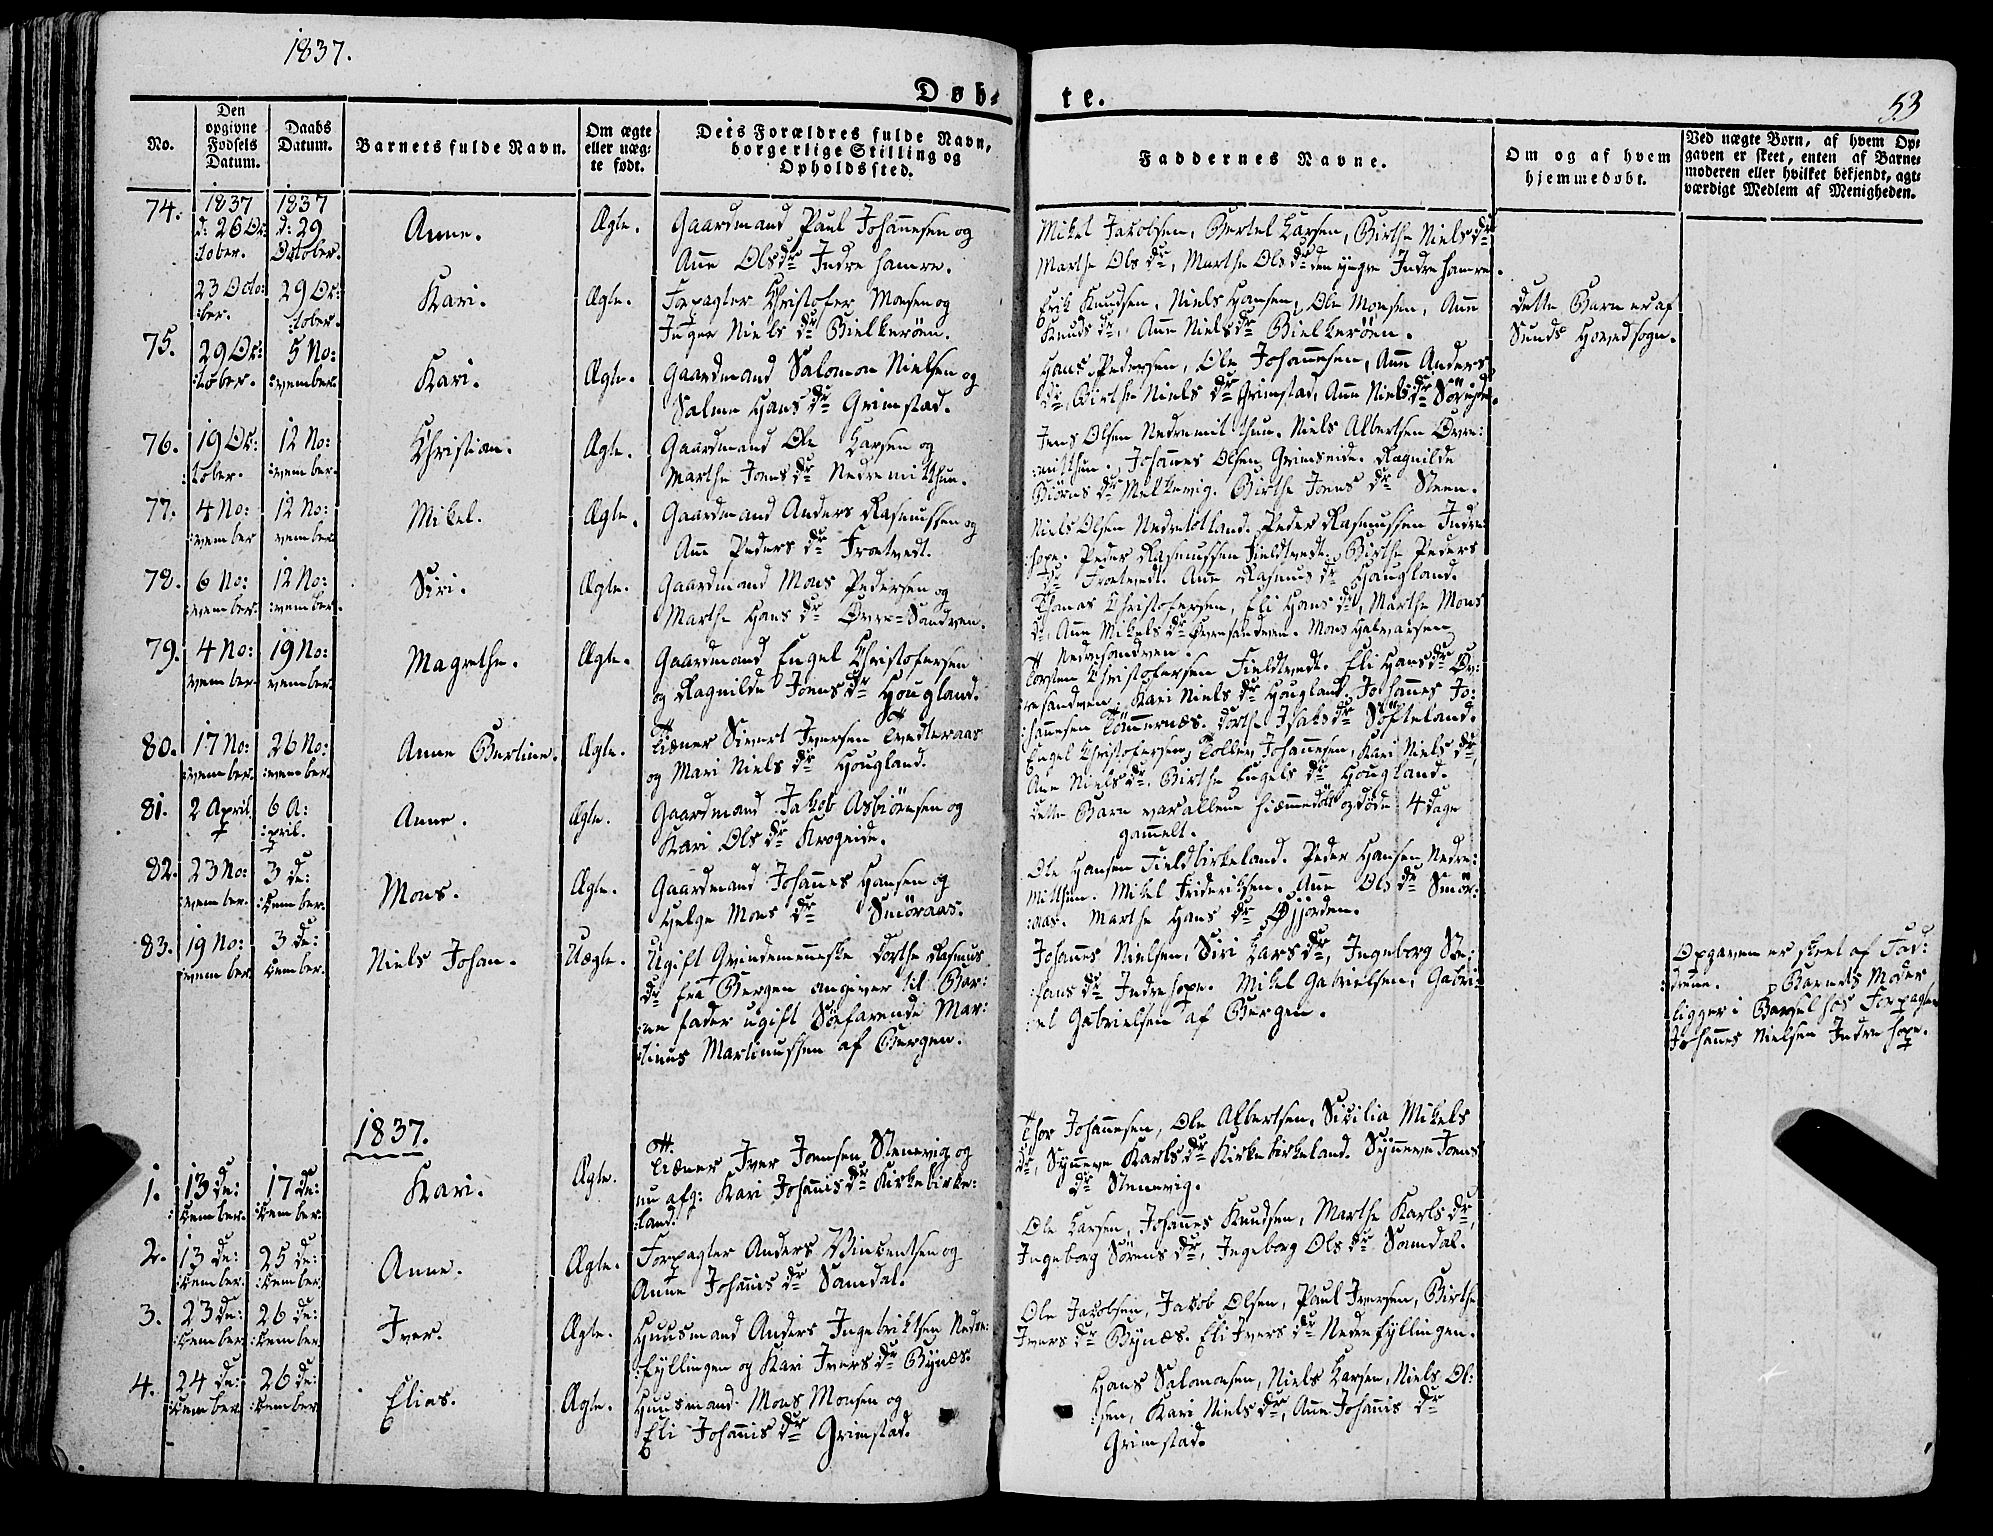 1837.
Døb-
te.
53
No.
Den
opgivne
Fødsels
Datum.
Daabs
Datum.
Barnets fulde Navn.
Om ægte
eller uæg-
te født.
Dets Forældres fulde Navn,
borgerlige Stilling og
Opholdssted.
Faddernes Navne.
Om og af hvem
hjemmedøbt.
Ved uægte Børn, af hvem Op-
gaven er skeet, enten af Barne-
moderen eller hvilket bekjendt, agt-
værdigt Medlem af Menigheden.
74.
1837
d: 26 Oc
:tober.
1837
d: 29
October.
Anne.
Ægte.
Gaardmand Paul Johannesen og
Ane Olsdr Indre hamre.
Mikel Jakobsen, Bertel Larsen, Birthe Nielsdr
Marthe Olsdr, Marthe Olsdr den yngre Indre hamre.
23 Octo:
:ber.
29 Oc:
:tober.
Kari.
Ægte.
Forpagter Christofer Monsen og
Inger Nielsdr Bielkerøen.
Erik Knudsen, Niels Hansen, Ole Monsen, Ane
Knudsdr, Ane Nielsdr Bielkerøen.
dette Barn er af
Sunds Hovedsogn.
75.
29 Oc:
:tober.
5 No:
:vember.
Kari.
Ægte.
Gaardmand Salomon Nielsen og
Salme Hansdr Grimstad.
Hans Pedersen, Ole Johannesen, Ane Anders
dr, Birthe Nielsdr Grimstad, Ane Nielsdr
76.
19 Oc:
:tober.
12 No:
:vember.
Christian.
Ægte.
Gaardmand Ole Larsen og
Marthe Joensdr Nedremitthun.
Jens Olsen Nedremitthun. Niels Albertsen Øvre:
:mitthun. Johannes Olsen Grimseide. Ragnilde
Biørnsdr Milkevig. Birthe Joensdr Steen.
77.
4 No:
:vember
12 No:
vember
Mikel.
Ægte.
Gaardmand Anders Rasmussen og
Ane Pedersdr Trætvedt.
Niels Olsen Nedretitland. Peder Rasmussen Indre:
:hope. Peder Rasmussen Fieldtvedt. Birthe Peders
dr Trætvedt. Ane Rasmusdr Haugland.
78.
6 No:
:vember.
12 No:
:vember.
Siri.
Ægte.
Gaardmand Mons Pedersen og
Marthe Hansdr Øvre-Sandven.
Thomas Christofersen, Eli Hansdr, Marthe Mons
dr, Ane Mikelsdr Øvresandven. Mons Halvarsen
Nedresandven.
79.
4 No:
vember.
19 No:
vember.
Magrethe.
Ægte.
Gaardmand Engel Christofersen
og Ragnilde Joensdr Hougland.
Torsten Christofersen Fieldtvedt. Eli Hansdr Øv:
resandven. Kari Nielsdr Hougland. Johannes Jo:
:hannesen Tømmernæs. Dorthe Isaksdr Søfteland.
80.
17 No:
:vember.
26 No:
:vember.
Anne Bertine.
Ægte.
Tiæner Sivert Iversen Tvedteraas
og Mari Nielsdr Hougland.
Engel Christofersen, Tollev Johannesen, Kari Nielsdr,
Ane Nielsdr, Birthe Engelsdr Hougland.
81.
2 April.
6 A:
:pril.
Anne.
Ægte.
Gaardmand Jakob Asbiørnsen og
Kari Olsdr Krogeide.
dette Barn var allene hiemmedøbt og døde 4 dage
gammelt.
82.
23 No:
:vember.
3 de:
:cember.
Mons.
Ægte.
Gaardmand Johannes Hansen og
Helge Monsdr Smøraas.
Ole Hansen Fieldbirkeland. Peder Hansen Nedre:
Mitthun. Mikel Frideriksen. Ane Olsdr Smør:
:aas. Marthe Hansdr Øjjorden.
83.
19 No:
vember.
3 de:
cember.
Niels Johan.
Uægte.
Ugift Qvindemenneske Dorthe Rasmus
dr fra Bergen angiver til Bar:
:ne fader ugift Søefarende Mar:
:tinus Martinussen af Bergen.
Johannes Nielsen, Siri Larsdr, Ingeborg Ste:
:fansdr Indrehope. Mikel Gabrielsen, Gabri:
:el Gabrielsen af Bergen.
Opgaven er skeet af Fad:
:drene. Barnets Moder
ligger i Barsel hos Forpagter
Johannes Nielsen Indre hope.
1837.
1.
13 de:
:cember.
17 de:
:cember.
Kari.
Ægte.
Tiæner Iver Joensen Stenevig og
nu afg: Kari Johannisdr Kirkebirke:
:land.
Thor Johannesen, Ole Albertsen, Sicilia Mikels
dr, Synneve Karlsdr Kirkebirkeland. Synneve Joens
dr Stenevig.
2.
13 de:
:cember.
25 de:
:cember.
Anne.
Ægte.
Forpagter Anders Vincentsen og
Anne Johannisdr Samdal.
Ole Larsen, Johannes Knudsen, Marthe Karlsdr,
Ingeborg Sørensdr, Ingeborg Olsdr Samdal.
3.
23 de:
:cember.
26 de:
:cember
Iver.
Ægte.
Huusmand Anders Ingebriktsen Nedre:
:fyllingen og Kari Iversdr Bynæs.
Ole Jakobsen, Jakob Olsen, Paul Iversen, Birthe
Iversdr Bynæs. Eli Iversdr Nedrefyllingen.
4.
24 de:
:cember
26 de:
:cember
Elias.
Ægte.
Huusmand Mons Monsen og
Eli Johannisdr Grimstad.
Hans Salomonsen, Niels Larsen, Niels Ol:
:sen, Kari Nielsdr, Ane Johannisdr
Grimstad.